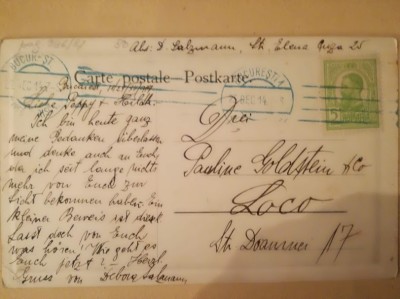 Abs: D Salzmann, Str. Elena Cuza 25
Carte postale – Postkarte.
BUCURESTI
BUCURESCI
DEC
5
Bucarest,
Liebe Poppy &
Ich bin heute ganz
meine Gedanken überlassen
und denke auch an Euch,
da ich seit lange nichts
mehr von Euch zu
Sicht bekommen habe. Ein
kleiner Beweis ist diese
Lasst doch von Euch
was hören! Wie geht es
Euch jetzt? – Herzl.
Gruss von Debora Salzmann
Drei
Pauline Goldstein & Co
Loco
Str. Doamnei 17